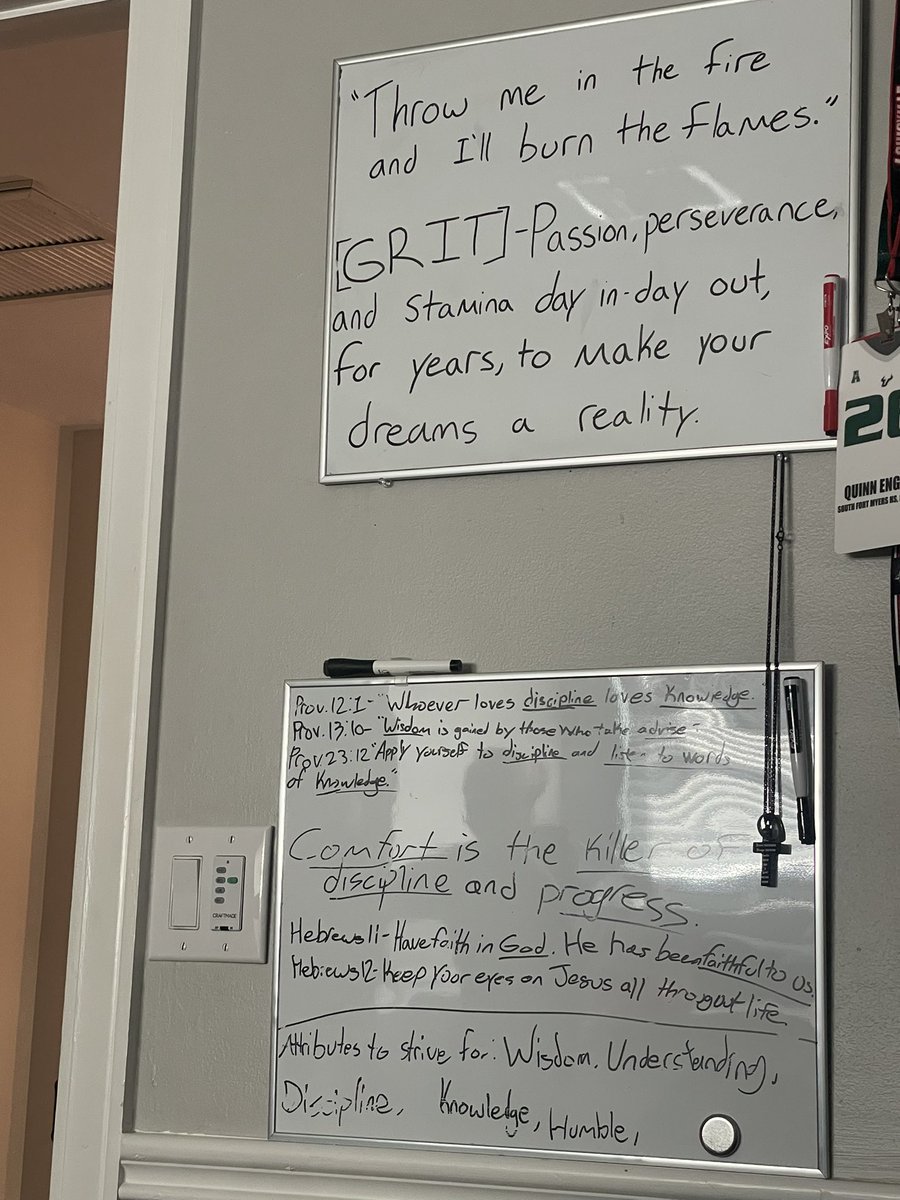 "Throw me in the fire
and I'll burn the flames."
[GRIT]-Passion, perseverance,
and stamina day in-day out,
for years, to make your
dreams a reality.
expo
LOUISVILLE
A
QUINN ENG
SOUTH FORT MYERS HS,
Prov. 12:1-"Whoever loves discipline loves knowledge."
Prov. 13:10-"Wisdom is gained by those who take advise"
Prov 23:12 "Apply yourself to discipline and listen to words
of knowledge."
Comfort is the killer of
discipline and progress.
Hebrews 11-Have faith in God. He has been faithful to us.
Hebrews 12-Keep your eyes on Jesus all througout life
Attributes to strive for: Wisdom, Understanding,
Discipline, Knowledge, Humble,
CRAFTMADE